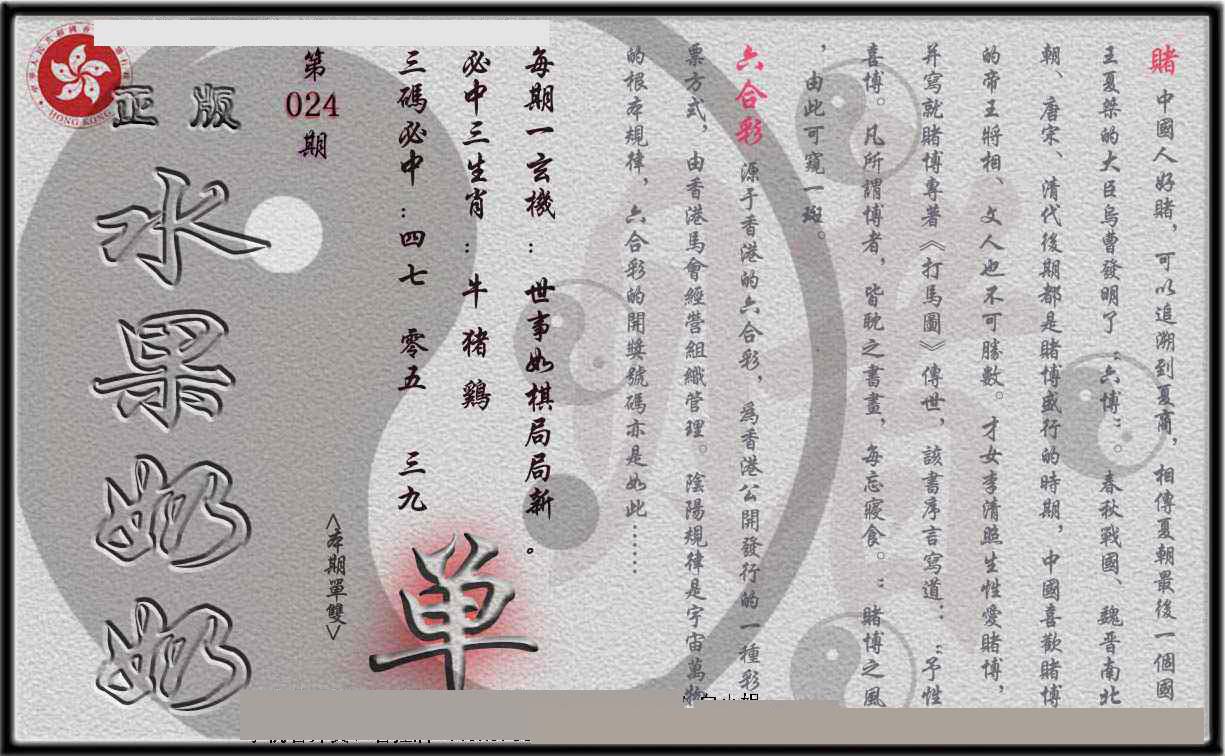 賭 中國人好賭，可以追溯到夏商，相傳夏朝最後一個國
王夏桀的大臣烏曹發明了“六博”。春秋戰國、魏晋南北
朝、唐宋、清代後期都是賭博盛行的時期，中國喜歡賭博
的帝王將相、文人也不可勝數。才女李清照生性愛賭博，
并寫就賭博專著《打馬圖》傳世，該書序言寫道：“予性
喜博。凡所謂博者，皆耽之書畫，每忘寢食。”賭博之風
，由此可窺一斑。
六合彩 源于香港的六合彩，爲香港公開發行的一種彩
票方式，由香港馬會經營組織管理。陰陽規律是宇宙萬物
的根本規律，六合彩的開獎號碼亦是如此……
每期一玄機：世事如棋局局新。
必中三生肖：牛 猪 鷄
三碼必中：四七 零五 三九
第024期
<本期單雙>
单
正版
水果奶奶
HONG KONG